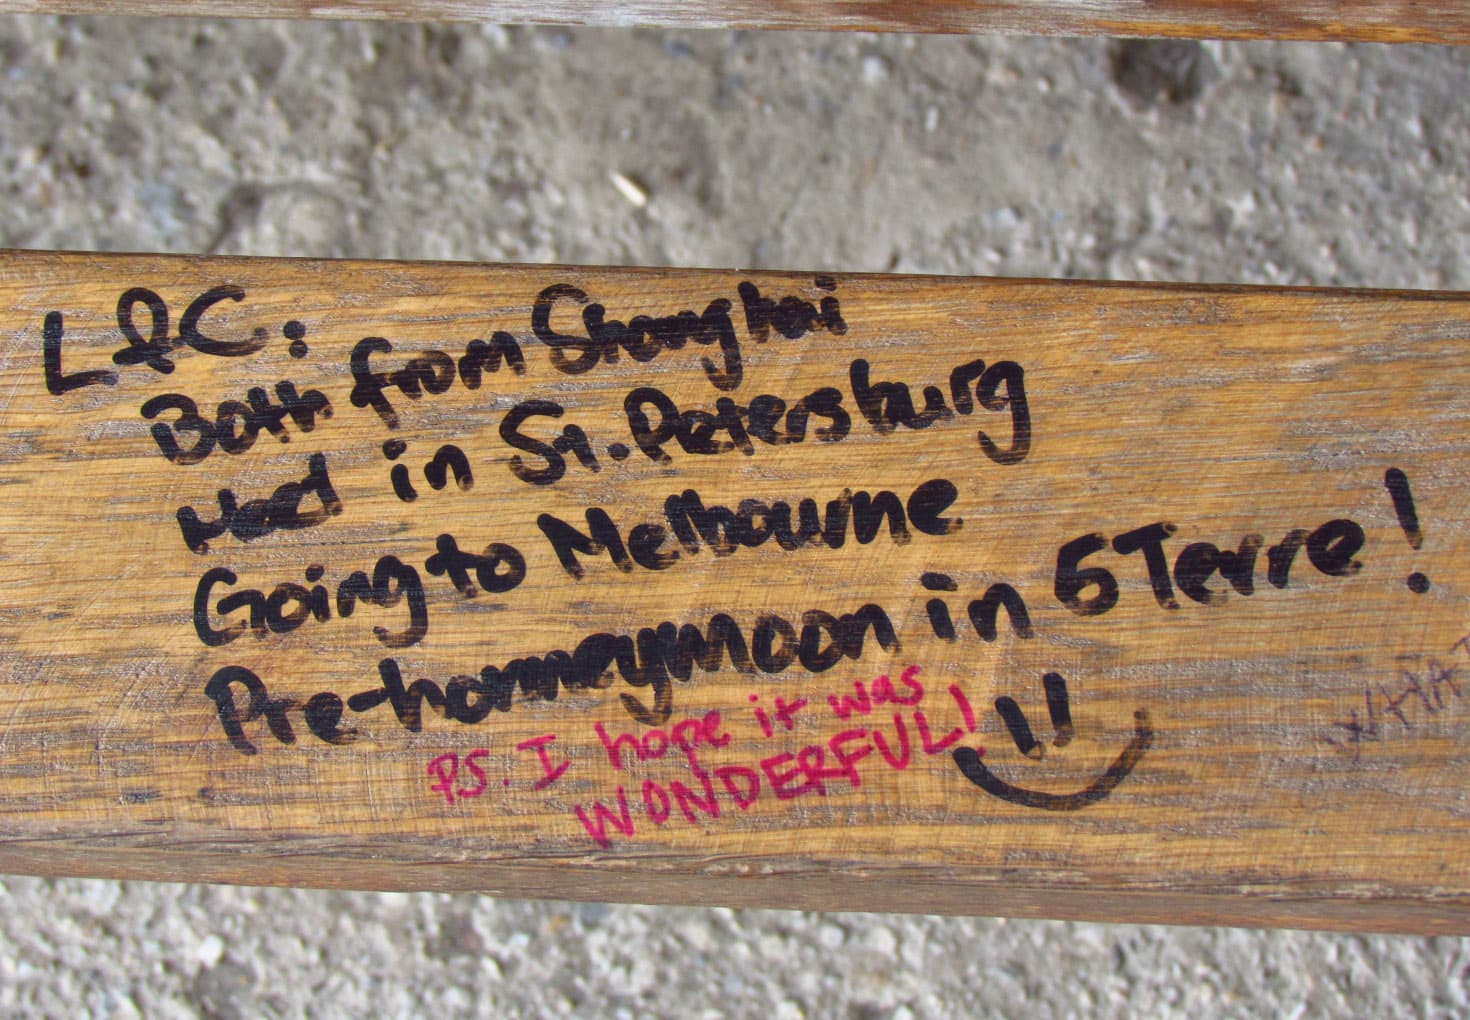 L & C:
Both from Shanghai
in St. Petersburg
Going to Melbourne
Pre-honneymoon in 5 Terre!
P.S. I hope it was
WONDERFUL!
WHAT